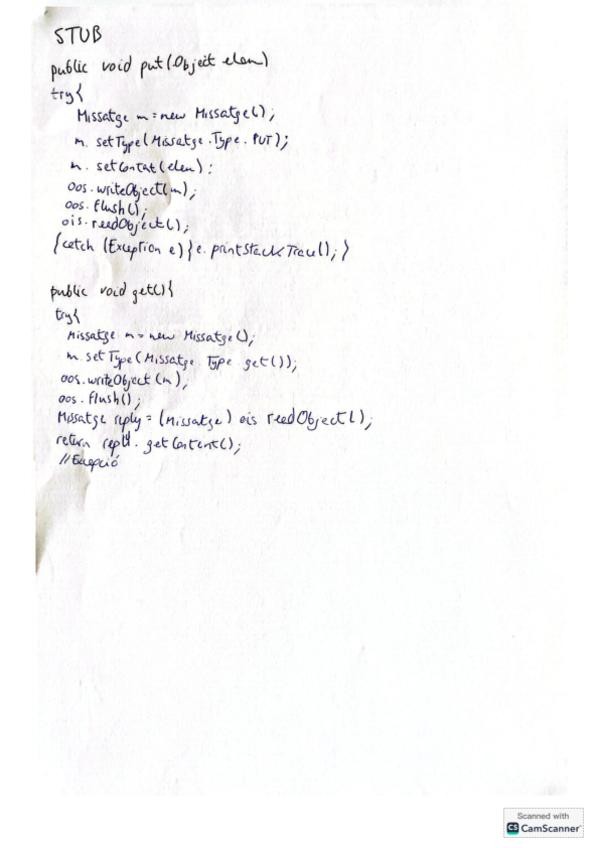 STUB
public void put(Object elem)
try{
Missatge m = new Missatge();
m. setType(Missatge.Type.PUT);
m. setContat(elem):
oos.writeObject(m);
oos.flush();
ois.readObject();
}catch (Exception e){e.printStackTrace();}
public void get(){
try{
Missatge m = new Missatge();
m. setType(Missatge. Type get());
oos.writeObject(m),
oos.flush();
Missatge reply = (Missatge) ois readObject();
return reply. getContent();
//Excepció
Scanned with
CS CamScanner